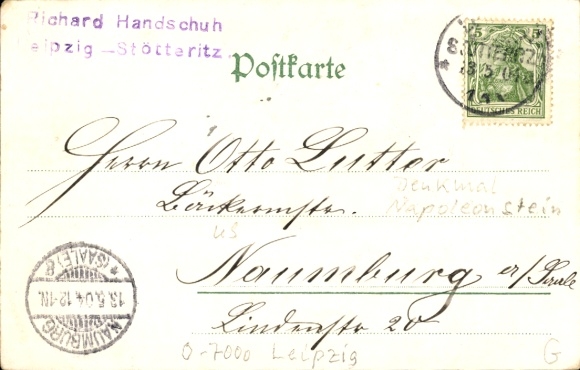 Richard Handschuh
Leipzig-Stötteritz
Postkarte
5 5
DEUTSCHES REICH
13.5.04
Herrn Otto Lutter
Bäckermstr.
Denkmal
Napoleonstein
us
Naumburg a/Saale
Lindenstr 20
NAUMBURG
13.5.04.12-1N.
* (SAALE) *
0-7000 Leipzig
G